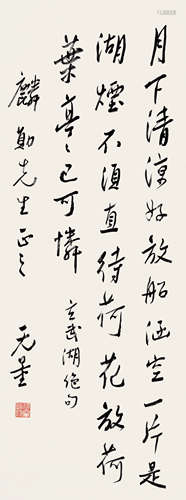 月下清凉好放船涵空一片是
湖烟不须直待荷花放荷
叶亭亭已可怜 玄武湖绝句
麟勋先生正之
无量